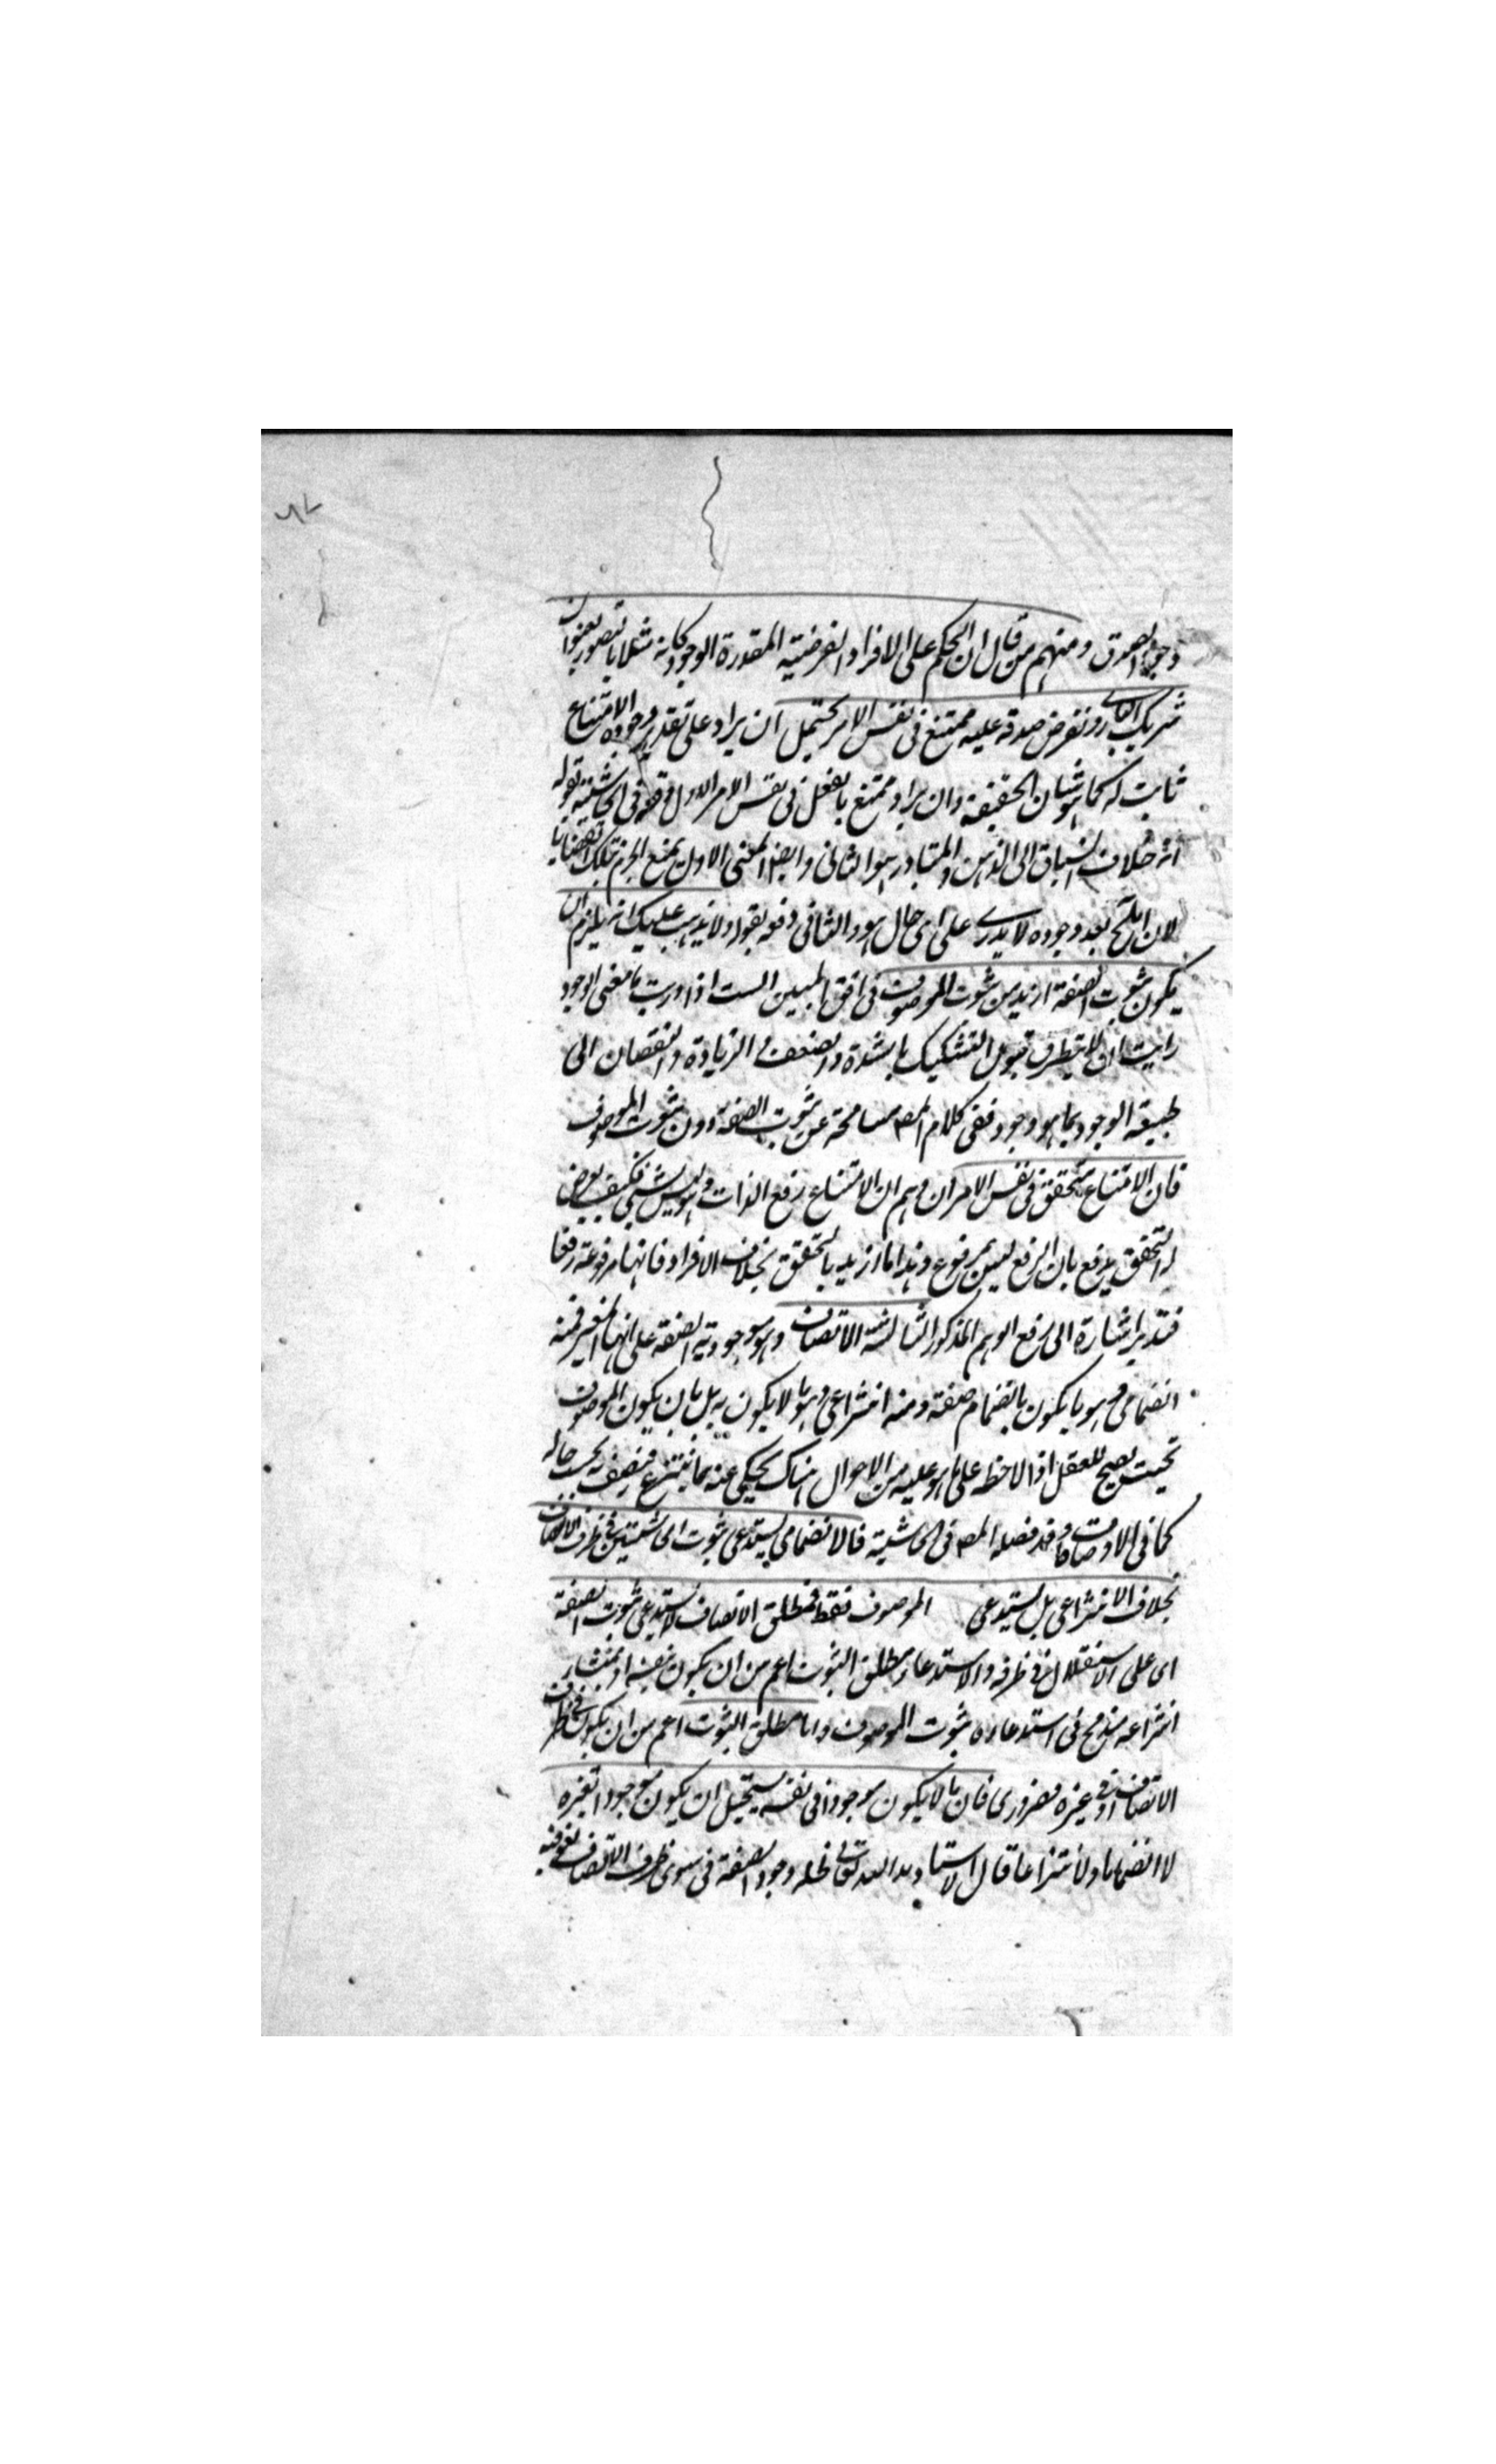 وجود الصدق ومنهم من قال ان الحكم على الافراد الفرضية المقدرة الوجود كانه مثلا ما يتصور بعنوان
شريك الباري ونفرض صدقه عليه ممتنع في نفس الامر يحتمل ان يراد على تقدير وجوده الامتناع
ثابت له كما هو شان الحقيقة وان يراد ممتنع بالفعل في نفس الامر الاول في الحاشية بقوله
انه خلاف انسباق الى الذهن والمتبادر هو الثاني وايضا المعنى الاول يمنع الجزم بتلك القضايا
لان بعد وجوده لا يدرى على اى حال هو والثاني دفعه بقوله ولا يذهب عليك انه يلزم ان
يكون ثبوت الصفة ازيد من ثبوت الموصوف في افق المبين الست اذا دريت ما معنى الوجود
رايت ان لا يتطرق قبول التشكيك بالشدة والضعف والزيادة والنقصان الى
طبيعة الوجود بما هو وجود ففي كلام المص مسامحة عن ثبوت الصفة دون ثبوت الموصوف
فان الامتناع متحقق في نفس الامر ان وهم ان الامتناع رفع الذات وهو ليس بشئ فكيف يعرض
له التحقق يدفع بان الرفع ليس بمرفوع وهذا ما اريد بالتحقق بخلاف الافراد فانها مرفوعة رفعا
فتدبر اشارة الى رفع الوهم المذكور الثالثة الاتصاف وهو موجودية الصفة على انها لغير فمنه
انضمامي وهو ما يكون بانضمام صفة ومنه انتزاعي وهو ما لا يكون به بل بان يكون الموصوف
بحيث يصح للعقل اذا لاحظه على ما هو عليه من الاحوال هناك يحكي عنه بما ينتزع فيتصف به بحسب حاله
كما في الاوصاف وقد فصله المص في الحاشية فالانضمامي يستدعي ثبوت الحاشيتين في ظرف الاتصاف
بخلاف الانتزاعي بل يستدعي الموصوف فقط فمطلق الاتصاف لا يستدعي ثبوت الصفة
اى على الاستقلال في ظرفه والاستدعاء ومطلق الثبوت اعم من ان يكون بنفسه او بمنشاء
انتزاعه مندمج في استدعاءه ثبوت الموصوف واما مطلق الثبوت اعم من ان يكون في ظرف
الاتصاف او في غيره فضروري فان ما لا يكون موجودا في نفسه يستحيل ان يكون موجودا لغيره
لا انضماما ولا انتزاعا قال الاستاد وجود الصفة في سوى ظرف الاتصاف